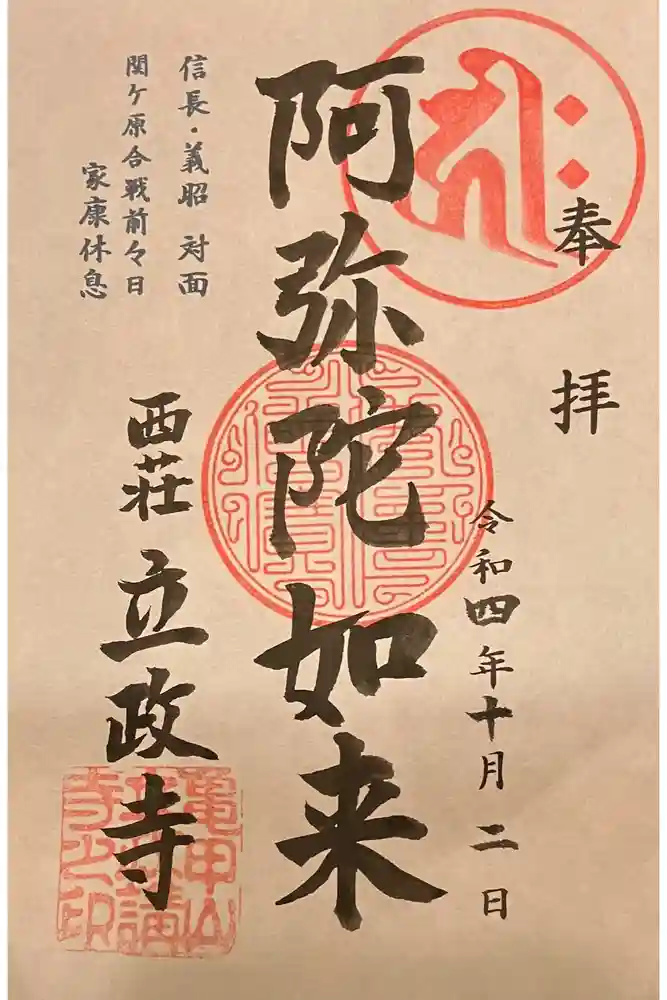 奉拝
令和四年十月二日
阿弥陀如来
信長・義昭 対面
関ケ原合戦前々日
家康休息
西荘 立政寺